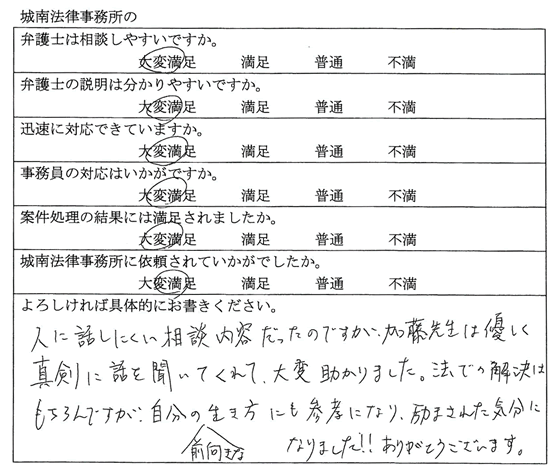 城南法律事務所の
弁護士は相談しやすいですか。
大変満足 満足 普通 不満
弁護士の説明は分かりやすいですか。
大変満足 満足 普通 不満
迅速に対応できていますか。
大変満足 満足 普通 不満
事務員の対応はいかがですか。
大変満足 満足 普通 不満
案件処理の結果には満足されましたか。
大変満足 満足 普通 不満
城南法律事務所に依頼されていかがでしたか。
大変満足 満足 普通 不満
よろしければ具体的にお書きください。
人に話しにくい相談内容だったのですが、加藤先生は優しく
真剣に話を聞いてくれて、大変助かりました。法での解決は
もちろんですが、自分の生き方にも参考になり、励まされた気分に
前向きな
なりました!!ありがとうございます。